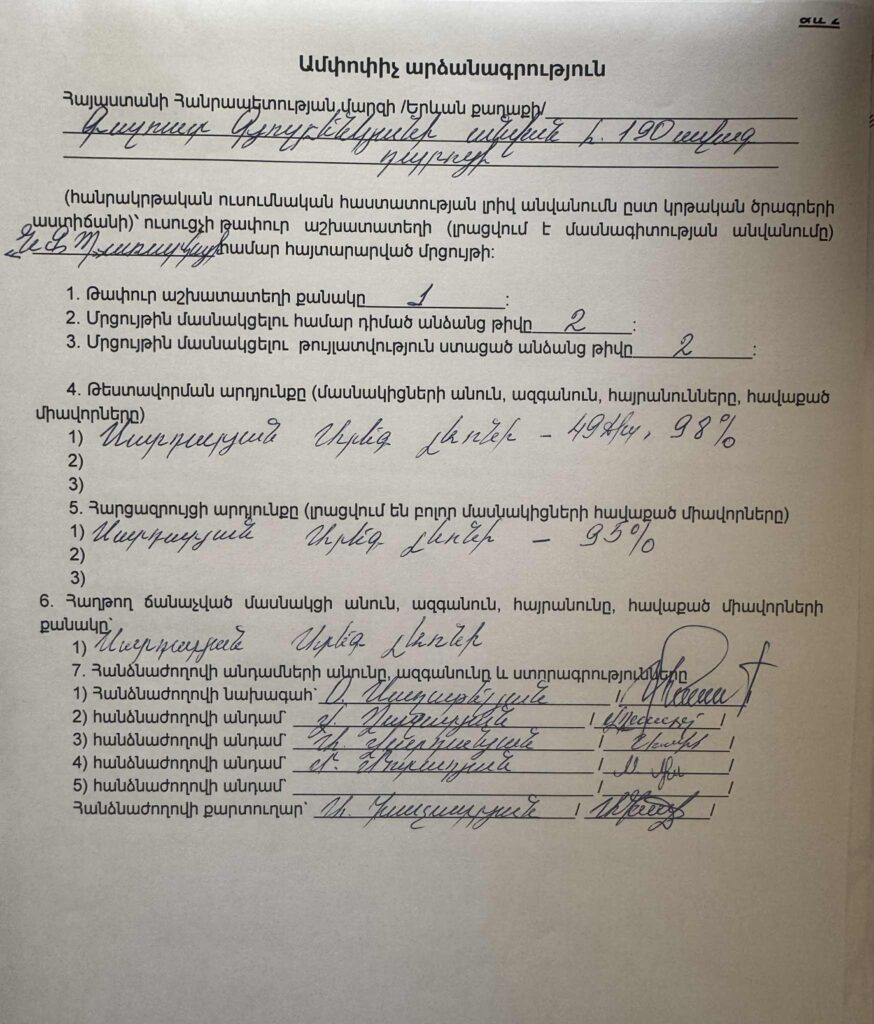 Ամփոփիչ արձանագրություն
Հայաստանի Հանրապետության վարզի /Երևան քաղաքի/
Գալուստ Գյուլբենկյանի անվան հ. 190 ավագ
դպրոցի
(հանրակրթական ուսումնական հաստատության լրիվ անվանումն ըստ կրթական ծրագրերի
աստիճանի)՝ ուսուցչի թափուր աշխատատեղի (լրացվում է մասնագիտության անվանումը)
համար հայտարարված մրցույթի:
1. Թափուր աշխատատեղի քանակը 1 :
2. Մրցույթին մասնակցելու համար դիմած անձանց թիվը 2 :
3. Մրցույթին մասնակցելու թույլատվություն ստացած անձանց թիվը 2 :
4. Թեստավորման արդյունքը (մասնակիցների անուն, ազգանուն, հայրանունները, հավաքած
միավորները)
1) Սարդարյան Արեգ Լևոնի – 49 միավ, 98%
2)
3)
5. Հարցազրույցի արդյունքը (լրացվում են բոլոր մասնակիցների հավաքած միավորները)
1) Սարդարյան Արեգ Լևոնի – 95%
2)
3)
6. Հաղթող ճանաչված մասնակցի անուն, ազգանուն, հայրանունը, հավաքած միավորների
քանակը՝
1) Սարդարյան Արեգ Լևոնի
7. Հանձնաժողովի անդամների անունը, ազգանունը և ստորագրությունները
1) Հանձնաժողովի նախագահ՝ Օ.
2) հանձնաժողովի անդամ՝
3) հանձնաժողովի անդամ՝ Վարդանյան
4) հանձնաժողովի անդամ՝ Մուրադյան
5) հանձնաժողովի անդամ՝
Հանձնաժողովի քարտուղար՝ Ա. Խաչատրյան